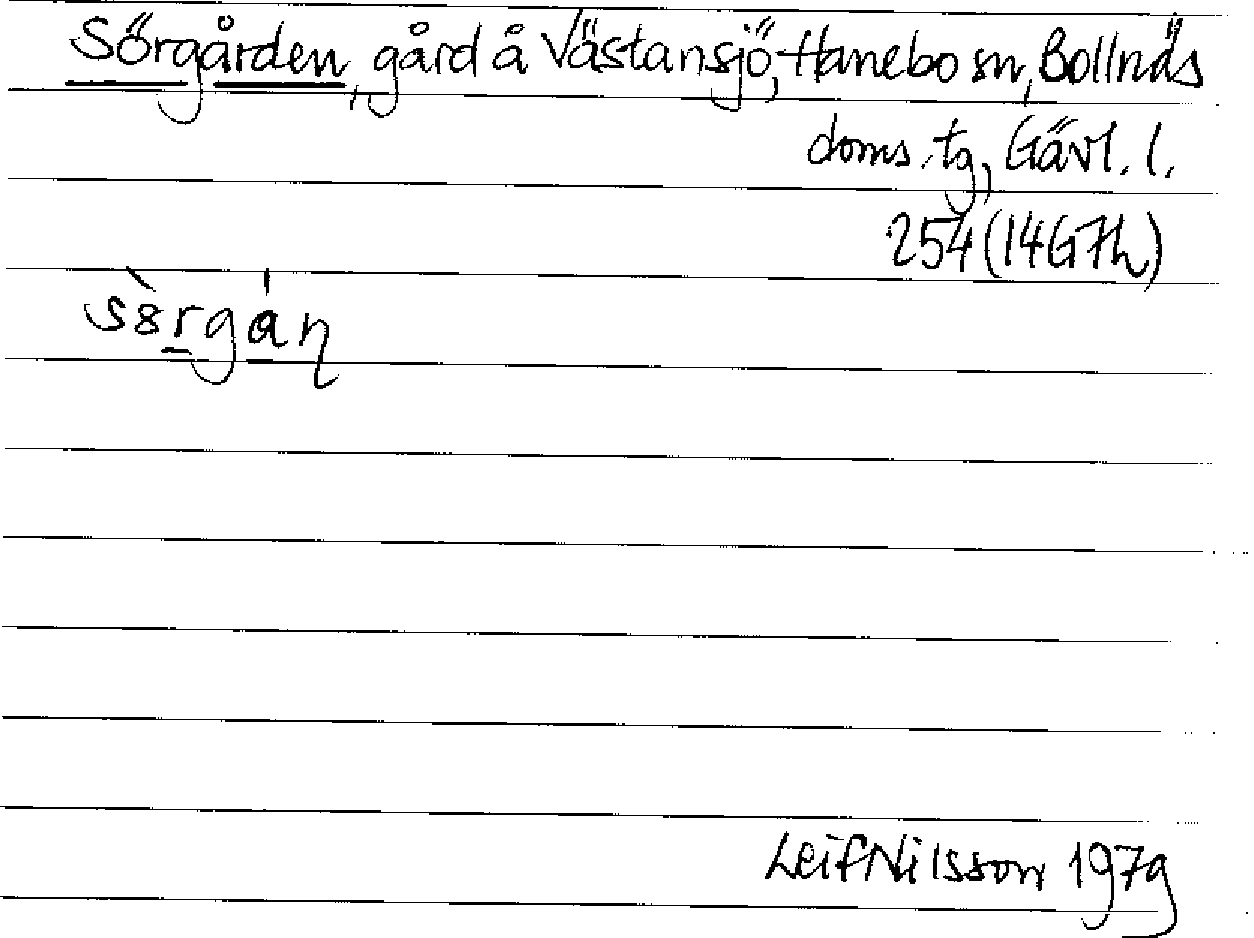 Sörgården, gård å Västansjö, Hanebo sn, Bollnäs
doms. tg, Gävl. l.
254 (14G7h)
Leif Nilsson 1979